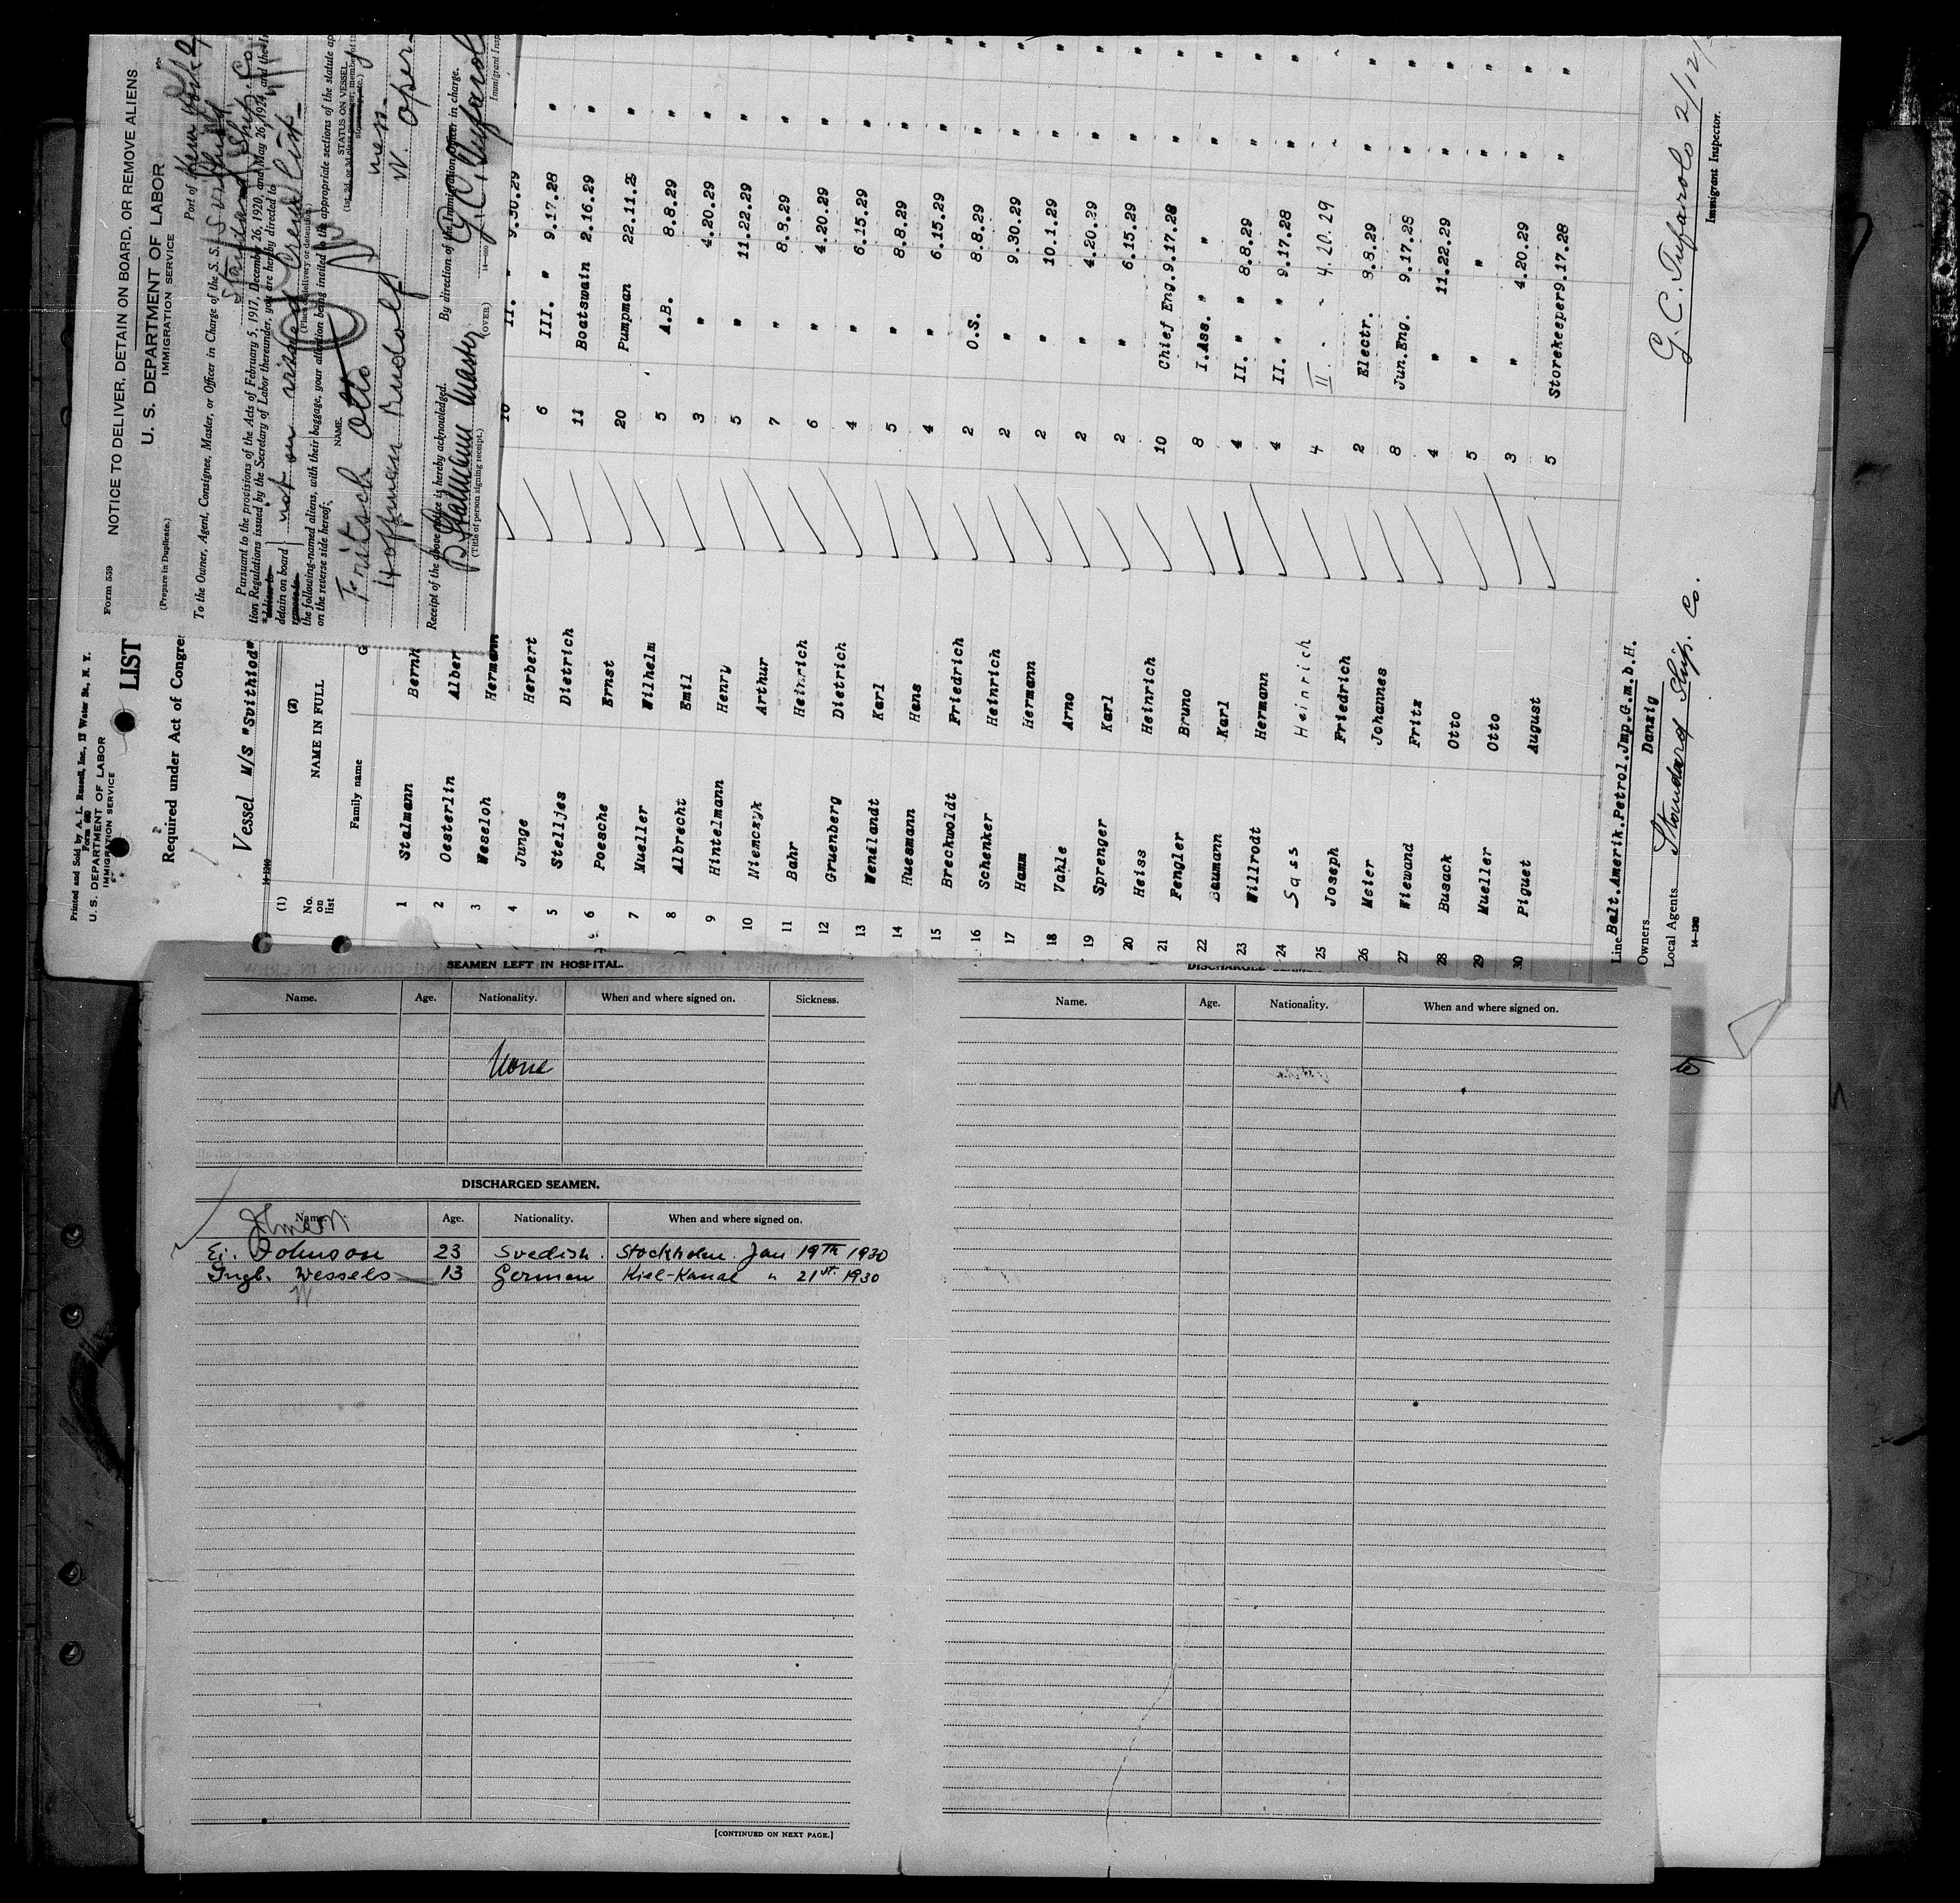 Form 559
NOTICE TO DELIVER, DETAIN ON BOARD, OR REMOVE ALIENS
U. S. DEPARTMENT OF LABOR
IMMIGRATION SERVICE
(Prepare in Duplicate.)
Port of New York
To the Owner, Agent, Consignee, Master, or Officer in Charge of the S. S. Svithiod
Standard Ship. Co.
Pursuant to the provisions of the Acts of February 5, 1917, December 26, 1920, and May 26, 1924, and the
tion Regulations issued by the Secretary of Labor thereunder, you are hereby directed to
detain on board not on visaed Crew List
(Place of delivery or detention.)
the following-named aliens, with their baggage, your attention being invited to the appropriate sections of the statute
on the reverse side hereof:
NAME. STATUS ON VESSEL
Fritsch Otto
Hoffman Rudolf
Receipt of the above notice is hereby acknowledged. By direction of the Immigration Officer in charge.
Stalmann Master G. C. Tufarolo
(Title of person signing receipt.) (OVER)
Printed and Sold by A. L. Russell, Inc., 17 Water St., N. Y.
Form 680
U. S. DEPARTMENT OF LABOR
IMMIGRATION SERVICE
LIST
Required under Act of Congre
Vessel M/S "Svithiod"
14-1240
(1) (2)
No. on list NAME IN FULL
Family name G
1 Stalmann Bernh
2 Oesterlin Alber
3 Weseloh Hermann 10 II. " 9.30.29
4 Junge Herbert 6 III. " 9.17.28 "
5 Stelljes Dietrich 11 Boatswain 2.16.29 "
6 Poesche Ernst 20 Pumpman 22.11.2 "
7 Mueller Wilhelm 5 A.B. 8.8.29 "
8 Albrecht Emil 3 " 4.20.29 "
9 Hintelmann Henry 5 " 11.22.29 "
10 Niemczyk Arthur 7 " 8.8.29 "
11 Bahr Heinrich 6 " 4.20.29 "
12 Gruenberg Dietrich 4 " 6.15.29 "
13 Wendlandt Karl 5 " 8.8.29 "
14 Huesmann Hans 4 " 6.15.29 "
15 Breckwoldt Friedrich 2 O.S. 8.8.29 "
16 Schenker Heinrich 2 " 9.30.29 "
17 Hamm Hermann 2 " 10.1.29 "
18 Vahle Arno 2 " 4.20.29 "
19 Sprenger Karl 2 " 6.15.29 "
20 Heiss Heinrich 10 Chief Eng. 9.17.28 "
21 Fengler Bruno 8 I.Ass. " " "
22 Baumann Karl 4 II. " " 8.8.29 "
23 Willrodt Hermann 4 II. " " 9.17.28 "
24 Sass Heinrich 4 II - - 4.20.29 "
25 Joseph Friedrich 2 Electr. 8.8.29 "
26 Meier Johannes 8 Jun.Eng. 9.17.28 "
27 Wiewand Fritz 4 " 11.22.29 "
28 Busack Otto 5 " " "
29 Mueller Otto 3 " 4.20.29 "
30 Piguet August 5 Storekeeper 9.17.28 "
Line Balt.Amerik.Petrol.Jmp.G.m.b.H.
Owners Danzig
Local Agents Standard Ship. Co.
14-1240
G. C. Tufarolo 2/12/
Immigrant Inspector.
SEAMEN LEFT IN HOSPITAL.
Name. Age. Nationality. When and where signed on. Sickness.
None
DISCHARGED SEAMEN.
Name. Age. Nationality. When and where signed on.
Ei. Johnson 23 Svedish. Stockholm. Jan 19th 1930
Ingb. Wessels 13 German Kiel-Kanal " 21st. 1930
[CONTINUED ON NEXT PAGE.]
Name. Age. Nationality. When and where signed on.